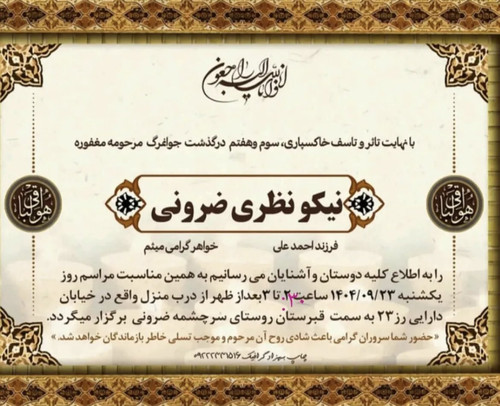 انا لله و انا الیه راجعون
با نهایت تاثر و تاسف خاکسپاری، سوم وهفتم درگذشت جوانمرگ مرحومه مغفوره
نیکو نظری ضرونی
هوالباقی
هوالباقی
فرزند احمد علی
خواهر گرامی میثم
را به اطلاع کلیه دوستان و آشنایان می رسانیم به همین مناسبت مراسم روز
یکشنبه ۱۴۰۴/۰۹/۲۳ ساعت ۲:۳۰ تا ۳ بعداز ظهر از درب منزل واقع در خیابان
دارایی رز ۲۳ به سمت قبرستان روستای سرچشمه ضرونی برگزار میگردد.
« حضور شما سروران گرامی باعث شادی روح آن مرحوم و موجب تسلی خاطر بازماندگان خواهد شد. »
چاپ بهزاد گرافیک